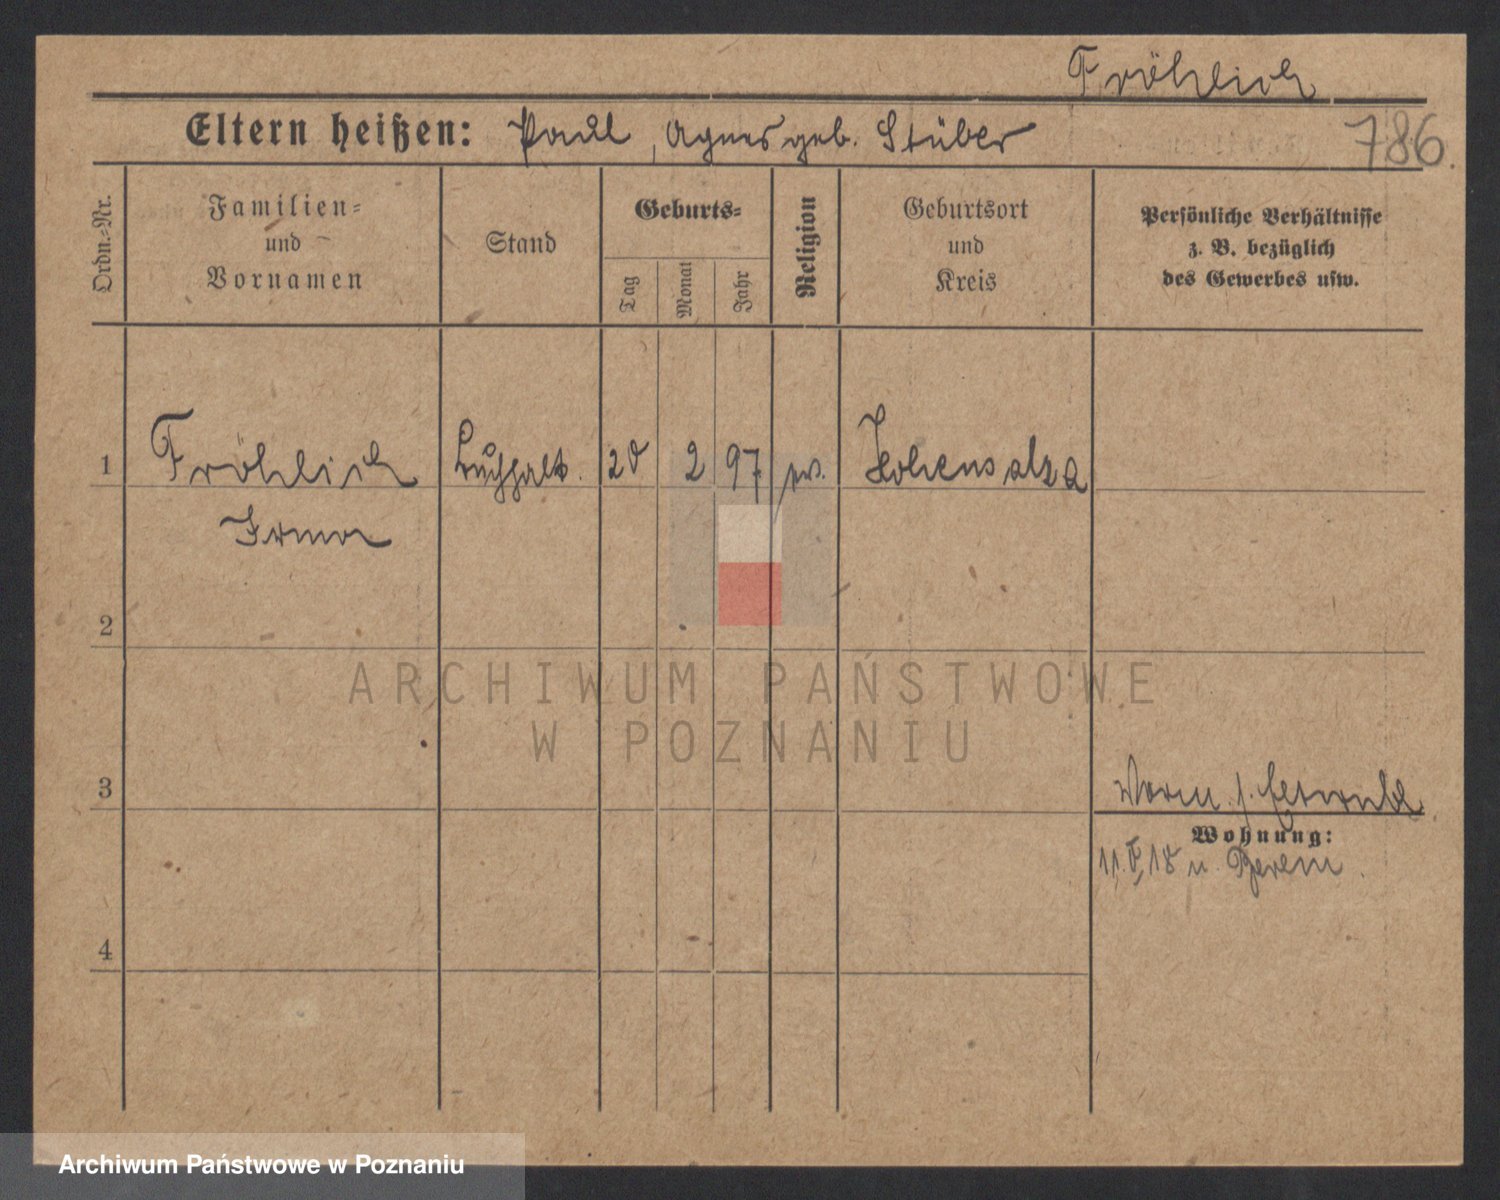 Fröhlich
Eltern heißen: Paul, Agnes geb. Stüber
786.
Ordn.-Nr.
Familien-
und
Vornamen
Stand
Geburts-
Tag
Monat
Jahr
Religion
Geburtsort
und
Kreis
Persönliche Verhältnisse
z. B. bezüglich
des Gewerbes usw.
1 Fröhlich Buchhalt. 20 2 97 Hohensalza
Irma
2
3
4
Wohnung:
18 n.
ARCHIWUM PAŃSTWOWE
W POZNANIU
Archiwum Państwowe w Poznaniu